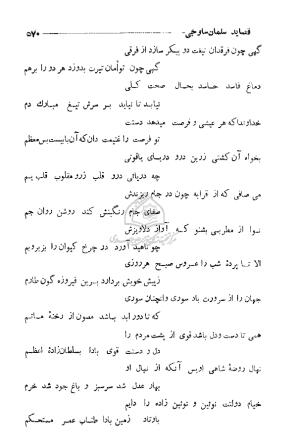 قصاید سلمان ساوجی ۵۷۰
گهی چون فرقدان تیغت دو پیکر سازد از فرقی
گهی چون توأمان تیرت بدوزد هر دو را برهم
دماغ فاسد حاسد بحال صحت کلی
نیابد تا نیاید بر سرش تیغ مبارک دم
خداوندا که هر عیشی و فرصت میدهد دستت
تو فرصت را غنیمت دان که آن بایست بس معظم
بخواه آن کشتی زرین درو دریای یاقوتی
چه دریائی درو قلب زر و مقلوب قلب یم
می صافی که از قرابه چون در جام ریزندش
صفای جام رنگینش کند روشن روان جم
نوا از مطربی بشنو که آواز دلاویزش
چو ناهید آورد در چرخ کیوان را بزیر و بم
الا تا پردهٔ شب را عروس صبح هر روزی
زپیش خویش بردارد برین فیروزه گون طارم
جهان را از سرورت باد سوری و آنچنان سوری
که تا دور ابد باشد مصون از رخنهٔ ماتم
همی تا دست و دل باشد قوی از پشت مردم را
دل و دست قوی بادا بسلطان زادهٔ اعظم
نهال روضهٔ شاهی اویس آنکه از نهال او
بهار عدل شد سرسبز و باغ جود شد خرم
خیام دولت نوئین و نوئین زاده را دایم
باوتاد زمین بادا طناب عمر مستحکم